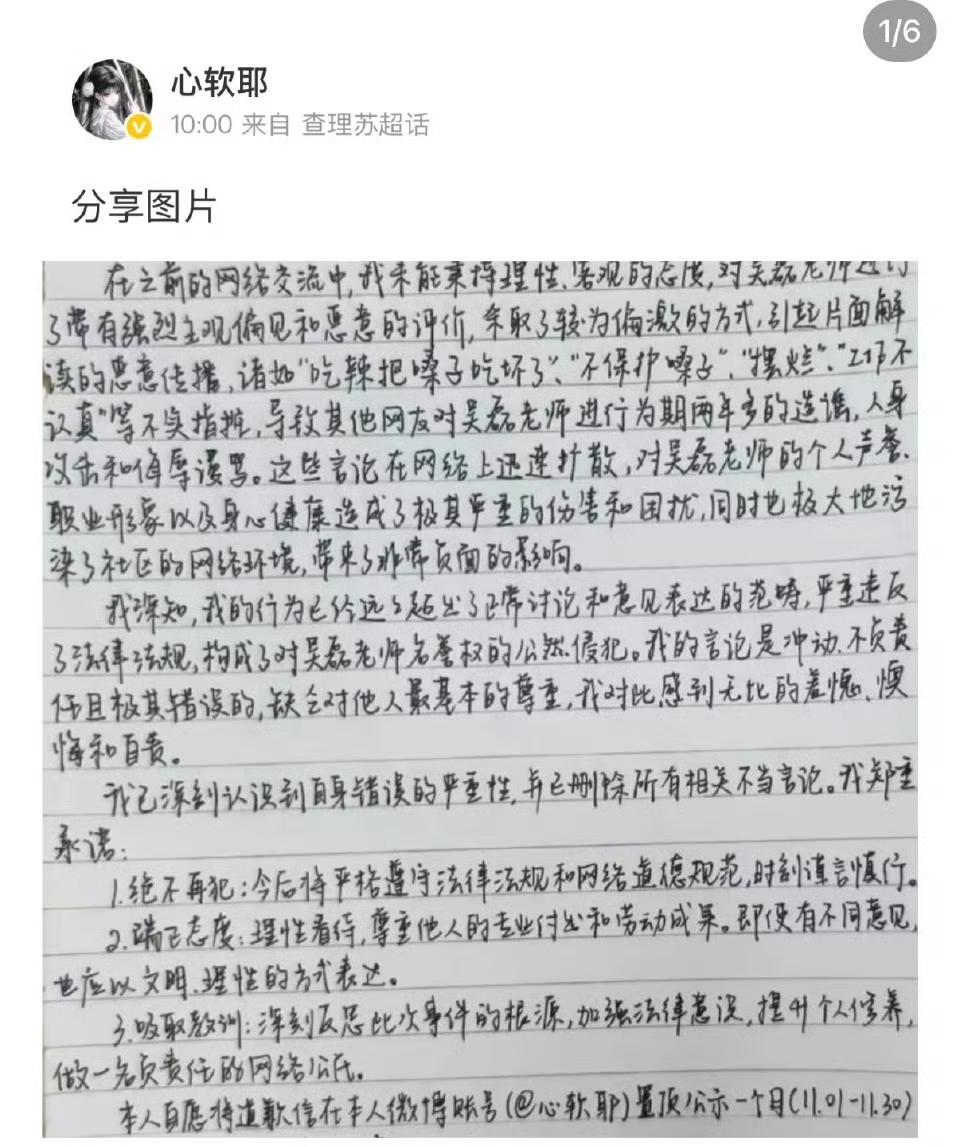 1/6
心软耶
10:00 来自 查理苏超话
分享图片
在之前的网络交流中,我未能秉持理性、客观的态度,对吴磊老师进行
了带有强烈主观偏见和恶意的评价,采取了较为偏激的方式,引起片面解
读的恶意传播,诸如"吃辣把嗓子吃坏了"、"不保护嗓子"、"摆烂"、"工作不
认真"等不实指摘,导致其他网友对吴磊老师进行为期两年多的造谣,人身
攻击和侮辱谩骂。这些言论在网络上迅速扩散,对吴磊老师的个人声誉、
职业形象以及身心健康造成了极其严重的伤害和困扰,同时也极大地污
染了社区的网络环境,带来了非常负面的影响。
我深知,我的行为已经远远超出了正常讨论和意见表达的范畴,严重违反
了法律法规,构成了对吴磊老师名誉权的公然侵犯。我的言论是冲动、不负责
任且极其错误的,缺乏对他人最基本的尊重,我对此感到无比的羞愧、懊
悔和自责。
我已深刻认识到自身错误的严重性,并已删除所有相关不当言论。我郑重
承诺:
1.绝不再犯:今后将严格遵守法律法规和网络道德规范,时刻谨言慎行。
2.端正态度:理性看待,尊重他人的专业付出和劳动成果。即便有不同意见,
也应以文明、理性的方式表达。
3.吸取教训:深刻反思此次事件的根源,加强法律意识,提升个人修养,
做一名负责任的网络公民。
本人自愿将道歉信在本人微博账号(@心软耶)置顶公示一个月(11.01-11.30)